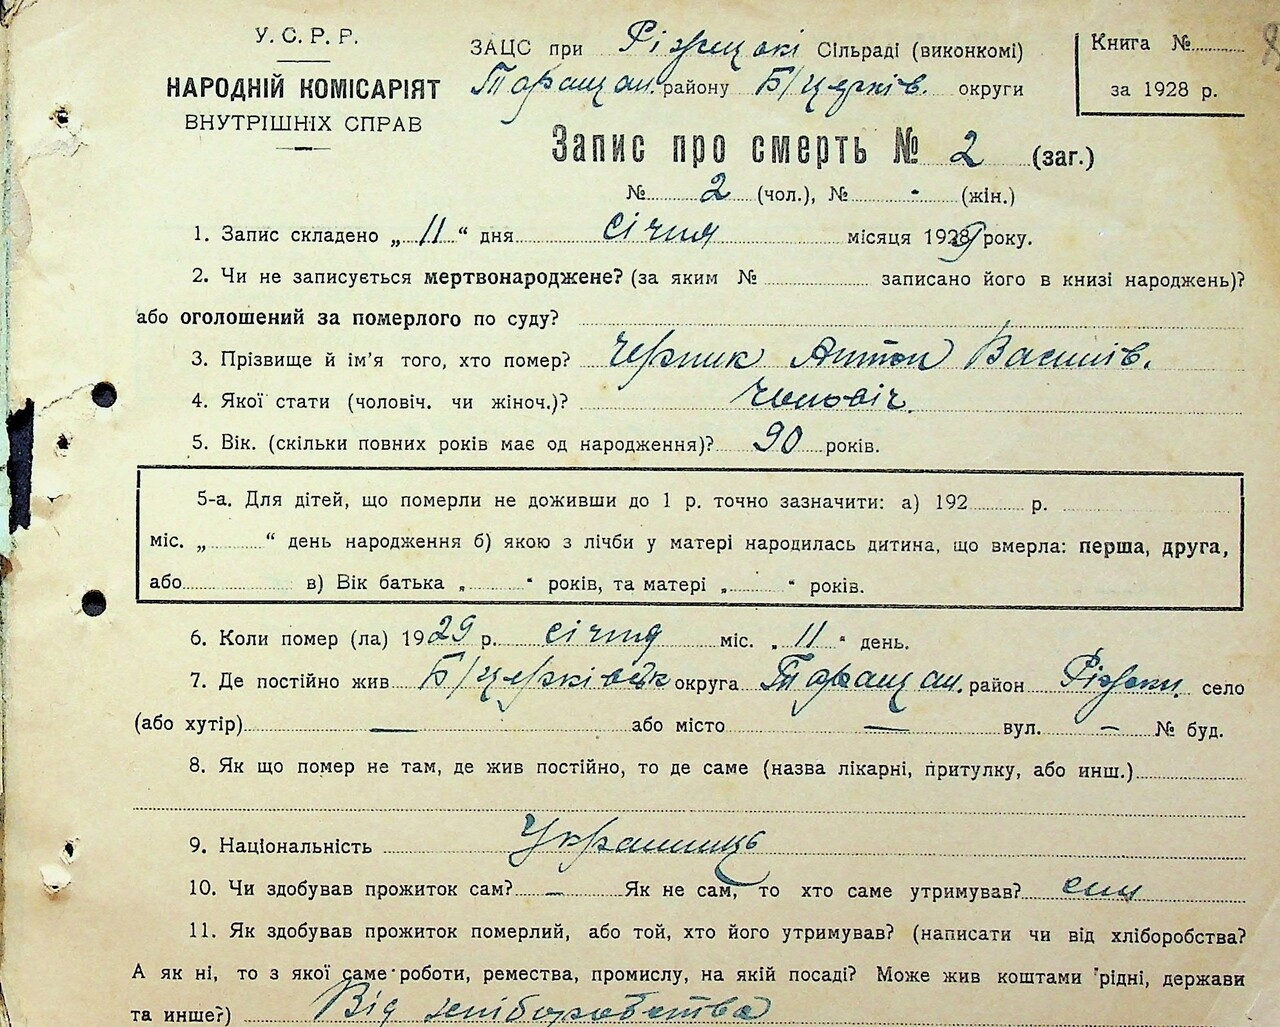 У. С. Р. Р.
НАРОДНІЙ КОМІСАРІЯТ
ВНУТРІШНІХ СПРАВ
ЗАЦС при Ріжецькі Сільраді (виконкомі)
Таращан. району Б/церків. округи
Книга №
за 1928 р.
Запис про смерть № 2 (заг.)
№ 2 (чол.), № - (жін.)
1. Запис складено „ 11 “ дня січня місяця 1929 року.
2. Чи не записується мертвонароджене? (за яким № записано його в книзі народжень)?
або оголошений за померлого по суду?
3. Прізвище й ім'я того, хто помер? Черник Антон Василів.
4. Якої стати (чоловіч. чи жіноч.)? Чоловіч.
5. Вік. (скільки повних років має од народження)? 90 років.
5-а. Для дітей, що померли не доживши до 1 р. точно зазначити: а) 192 р.
міс. „ “ день народження б) якою з лічби у матері народилась дитина, що вмерла: перша, друга,
або в) Вік батька „ “ років, та матері „ “ років.
6. Коли помер (ла) 1929 р. січня міс. „ 11 “ день.
7. Де постійно жив Б/церківськ округа Таращан. район село
(або хутір) — або місто — вул. — № буд.
8. Як що помер не там, де жив постійно, то де саме (назва лікарні, притулку, або инш.)
9. Національність Украинець
10. Чи здобував прожиток сам? — Як не сам, то хто саме утримував? син
11. Як здобував прожиток померлий, або той, хто його утримував? (написати чи від хліборобства?
А як ні, то з якої саме роботи, ремества, промислу, на якій посаді? Може жив коштами рідні, держави
та инше?) Від хліборобства